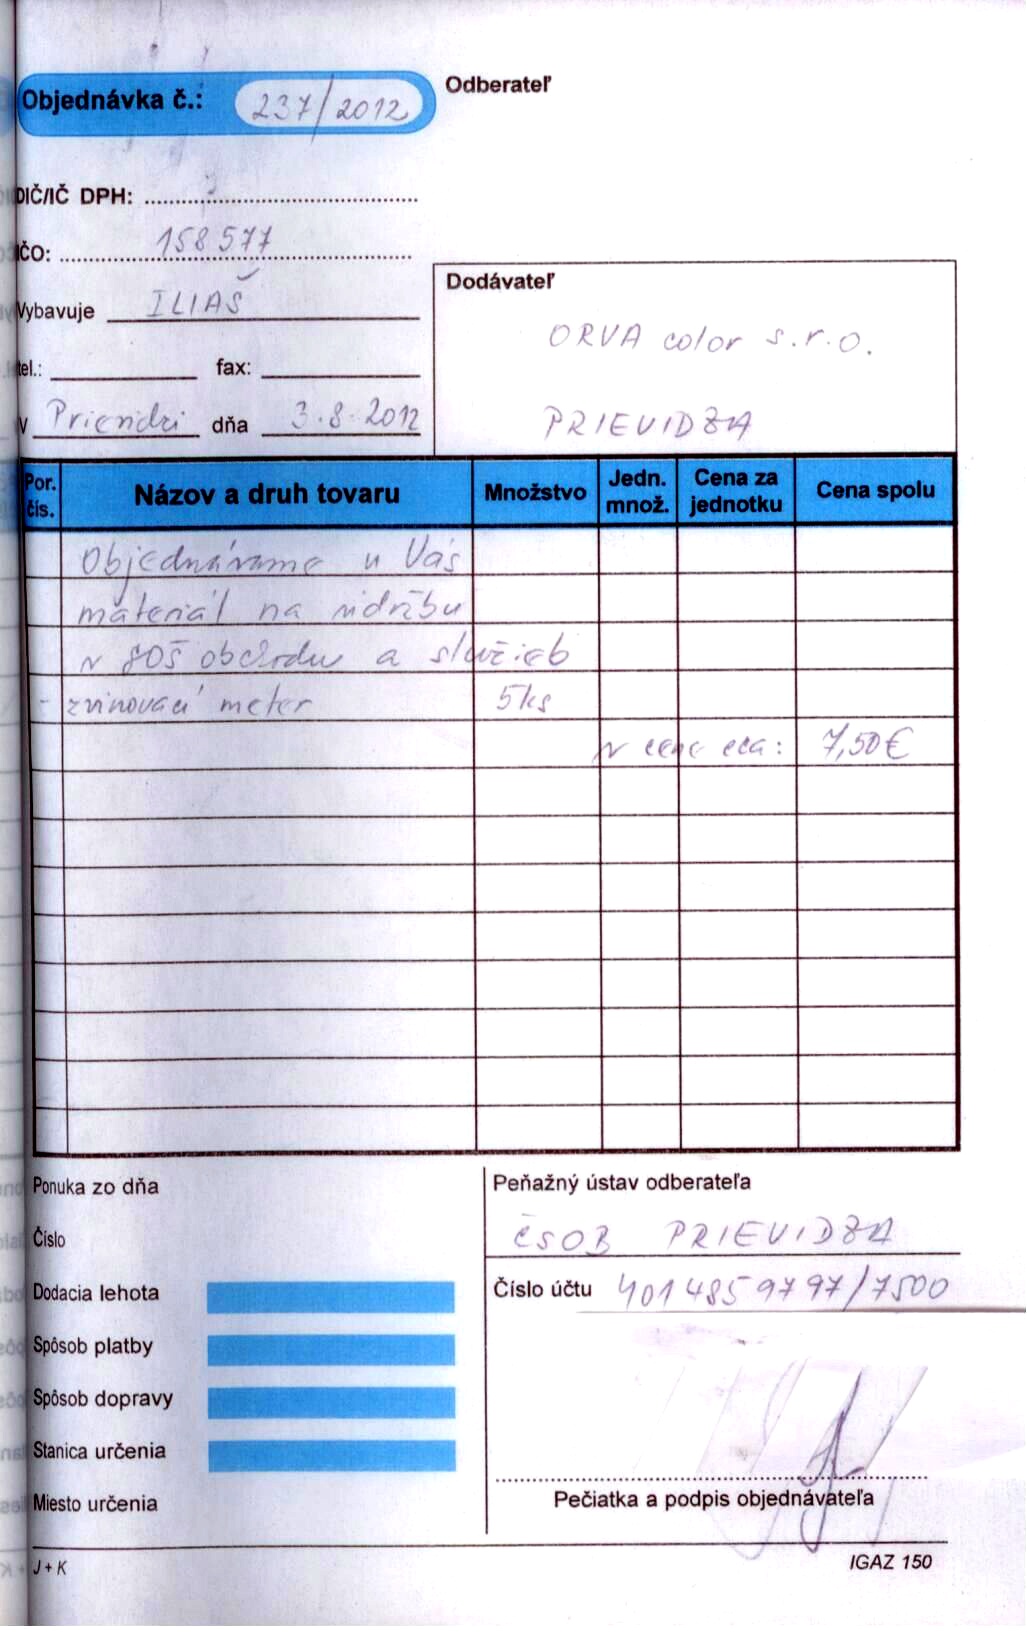 Objednávka č.: 237/2012
Odberateľ
DIČ/IČ DPH:
IČO: 158577
Vybavuje ILIAŠ
tel.: fax:
V Prievidzi dňa 3.8.2012
Dodávateľ
ORVA color s.r.o.
PRIEVIDZA
Por. čís. Názov a druh tovaru Množstvo Jedn. množ. Cena za jednotku Cena spolu
Objednávame u Vás
materiál na údržbu
v SOŠ obchodu a služieb
- zvinovací meter 5ks
v cene cca: 7,50€
Ponuka zo dňa
Číslo
Dodacia lehota
Spôsob platby
Spôsob dopravy
Stanica určenia
Miesto určenia
Peňažný ústav odberateľa
ČSOB PRIEVIDZA
Číslo účtu 4014859797/7500
Pečiatka a podpis objednávateľa
J + K
IGAZ 150